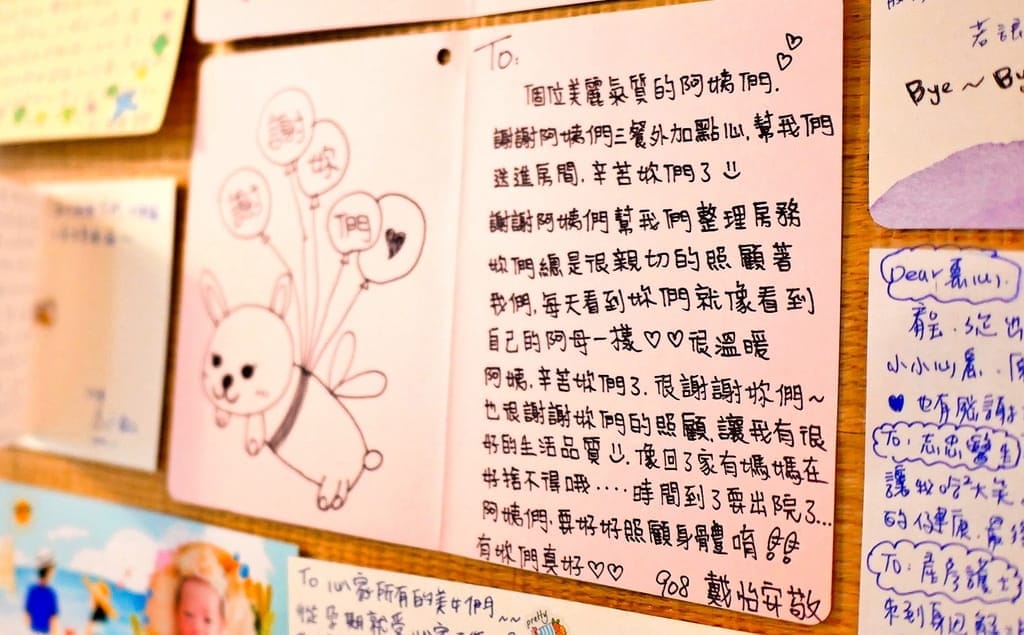 謝
妳
謝
們
To:
個位美麗氣質的阿姨們.
謝謝阿姨們三餐外加點心,幫我們
送進房間.辛苦妳們了
謝謝阿姨們幫我們整理房務
妳們總是很親切的照顧著
我們,每天看到妳們就像看到
自己的阿母一樣♡♡很溫暖
阿姨,辛苦妳們了.很謝謝妳們~
也很謝謝妳們的照顧,讓我有很
好的生活品質 .像回了家有媽媽在
好捨不得哦....時間到了要出院了...
阿姨們.要好好照顧身體唷!!
有妳們真好♡♡ 908 戴怡安敬
Bye~ By
Dear
小小心
♥也有
To:志忠醫生
讓我吃大笑
的健康.最
To:產房護
To 心家所有的美女們~~
從孕期就受
pretty